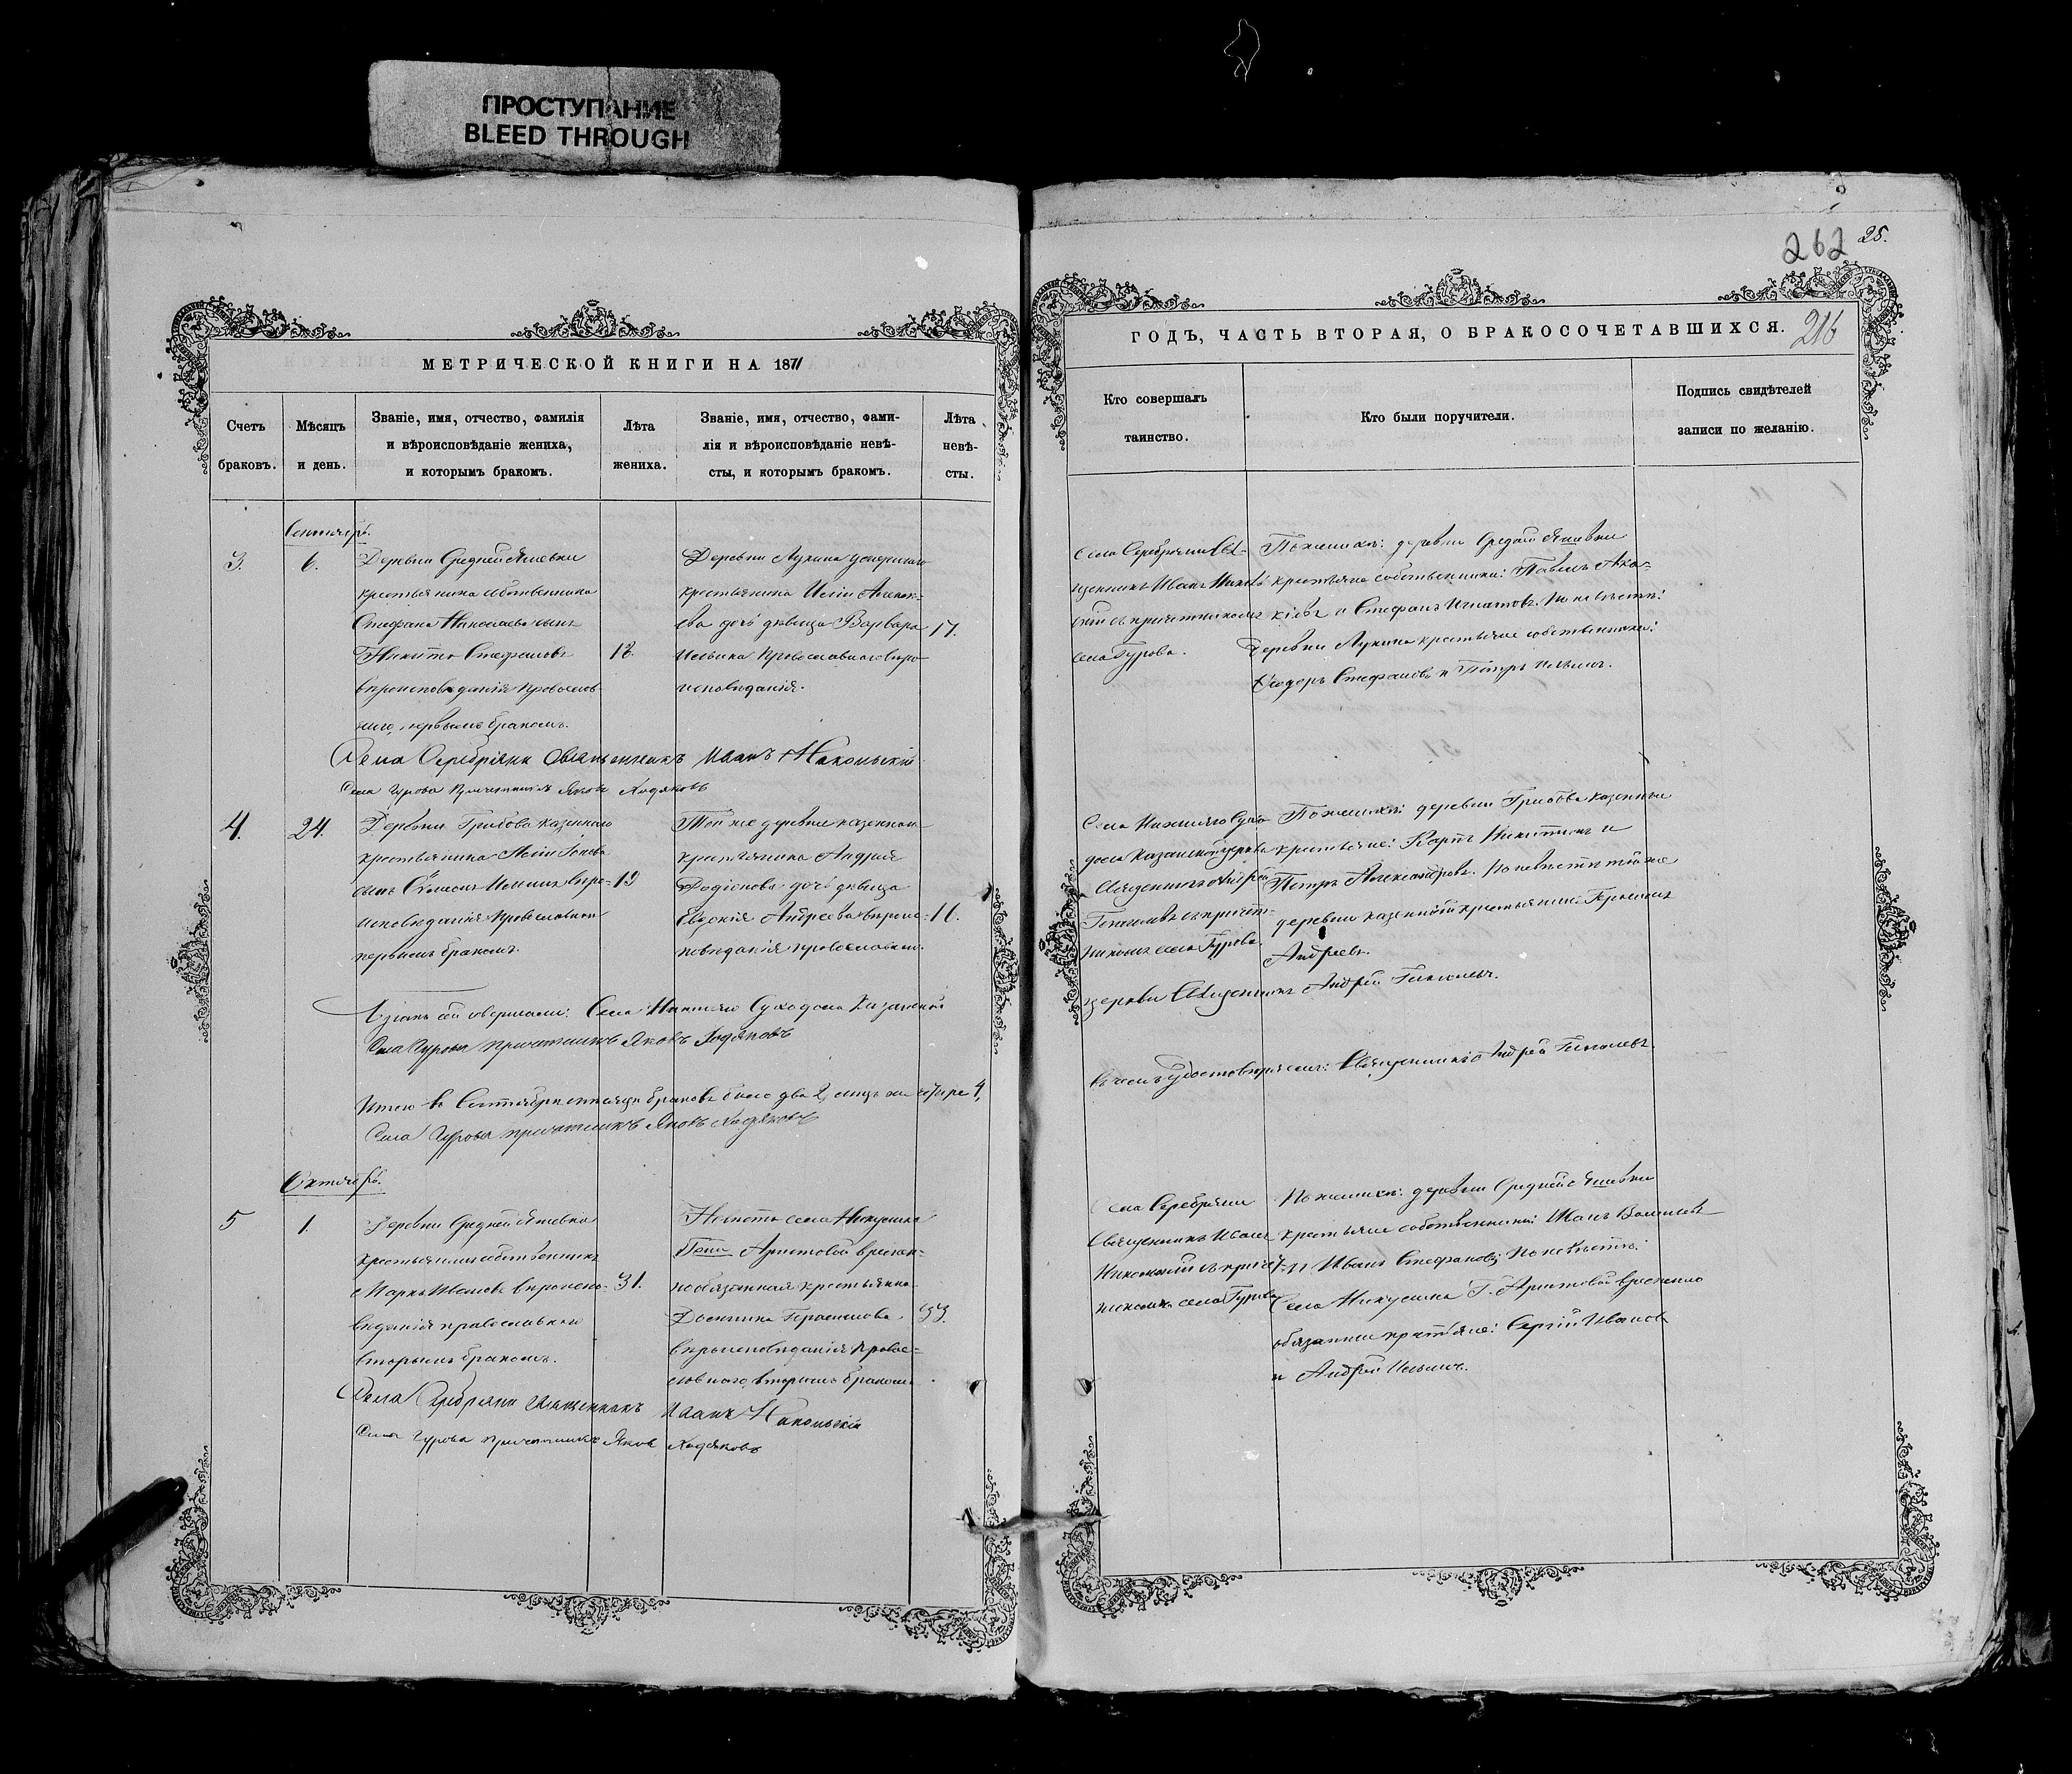 ПРОСТУПАНИЕ
BLEED THROUGH
МЕТРИЧЕСКОЙ КНИГИ НА 1871
Счетъ браковъ.
Мѣсяцъ и день.
Званіе, имя, отчество, фамилія
и вѣроисповѣданіе жениха,
и которымъ бракомъ.
Лѣта жениха.
Званіе, имя, отчество, фами-
лія и вѣроисповѣданіе невѣ-
сты, и которымъ бракомъ.
Лѣта
невѣ-
сты.
Сентябрь.
3.
6.
Деревни Средней Яшевки
крестьянина собственника
Стефана Николаева сынъ
Никита Стефановъ
вѣроисповѣданія православ-
наго, первымъ бракомъ.
18.
Деревни Лукина
крестьянина Иліи Алексѣ-
ева дочь дѣвица Варвара
Ильина православнаго вѣро-
исповѣданія.
17.
Села Серебряни Священникъ Иванъ Никольскій
Села Гурова Причетникъ Яковъ Ходяковъ
4.
24.
Деревни Грибова казеннаго
крестьянина Иліи
сынъ Ильинъ вѣро-
исповѣданія православнаго
первымъ бракомъ.
19
Той же деревни казеннаго
крестьянина Андрея
Родіонова дочь дѣвица
Евдокія Андреева вѣроис-
повѣданія православнаго.
16.
Бракъ сей совершали: Села Нижняго Суходола Казанской
Села Гурова Причетникъ Яковъ Ходяковъ
Итого въ Сентябрѣ мѣсяцѣ браковъ было два 2, лицъ же четыре 4,
Села Гурова причетникъ Яковъ Ходяковъ
Октябрь.
5
1.
Деревни Средней Яшевки
крестьянинъ собственникъ
Маркъ Ивановъ вѣроиспо-
вѣданія православнаго
вторымъ бракомъ.
31.
Невѣста села Никулина
Г-жи Аристовой времен-
нообязанная крестьянка
Домника Герасимова
вѣроисповѣданія право-
славнаго, вторымъ бракомъ.
33.
Села Серебряни Священникъ Иванъ Никольскій
Села Гурова Причетникъ Яковъ Ходяковъ
262
25.
ГОДЪ, ЧАСТЬ ВТОРАЯ, О БРАКОСОЧЕТАВШИХСЯ.
216
Кто совершалъ
таинство.
Кто были поручители.
Подпись свидѣтелей
записи по желанію.
Села Серебряни Свя-
щенникъ Иванъ Николь-
скій съ причетникомъ
села Гурова.
По женихѣ: деревни Средней Яшевки
крестьяне собственники: Павелъ Ака-
кіевъ и Стефанъ Игнатовъ. По невѣстѣ:
Деревни Лукина крестьяне собственники:
Ѳеодоръ Стефановъ и Петръ Ильинъ.
Села Нижняго Сухо-
дола Казанской церкви
Священникъ Андрей
съ причет-
никомъ села Гурова.
По женихѣ: деревни Грибова казенные
крестьяне: Карпъ Никитинъ и
Петръ Александровъ. По невѣстѣ той же
деревни казенный крестьянинъ: Герасимъ
Андреевъ.
церкви Священникъ Андрей
въ чемъ удостовѣряемъ: Священникъ Андрей
Села Серебряни
Священникъ Иванъ
Никольскій съ причет-
никомъ села Гурова
По женихѣ: деревни Средней Яшевки
крестьяне собственники: Иванъ Васильевъ
и Иванъ Стефановъ; По невѣстѣ:
Села Никулина Г. Аристовой временно
обязанные крестьяне: Сергій Ивановъ
и Андрей Ильинъ.